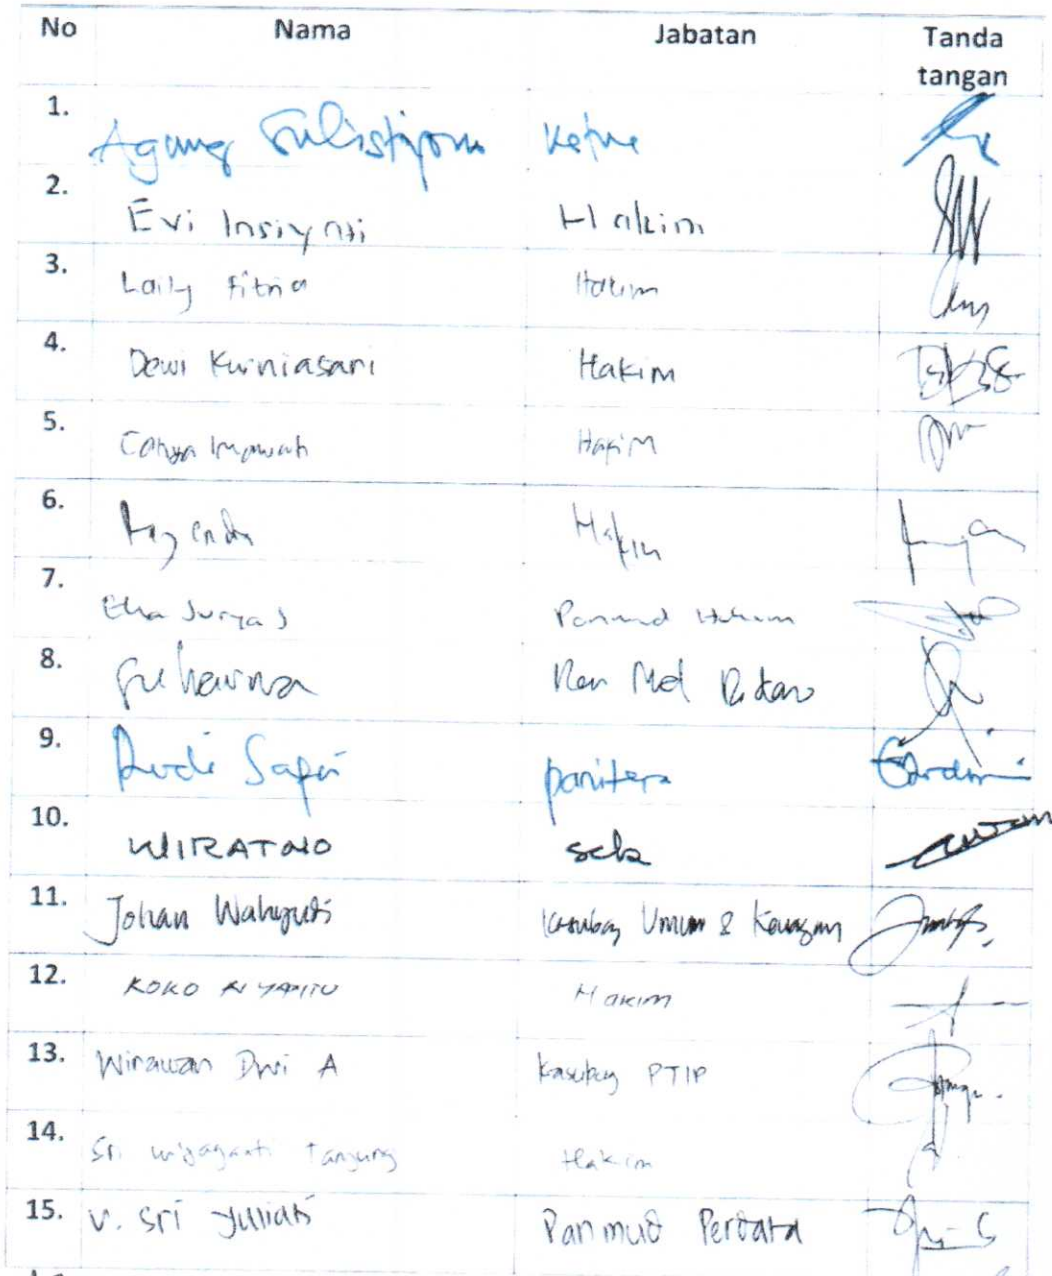 No Nama Jabatan Tanda
tangan
1. Agung Sulistiyono Ketua
2. Evi Insiyati Hakim
3. Laily Fitria Hakim
4. Dewi Kurniasari Hakim
5. Cahya Imawati Hakim
6. Hakim
7. Eka Surya S Panmud Hukum
8. Suhawna Pan Mud
9. Rudi Sapri panitera
10. WIRATNO sek
11. Johan Wahyudi Kasubag Umum & Keuangan
12. KOKO Hakim
13. Wirawan Dwi A Kasubag PTIP
14. Sri wijayanti Tanjung Hakim
15. V. Sri Yuliati Panmud Perdata